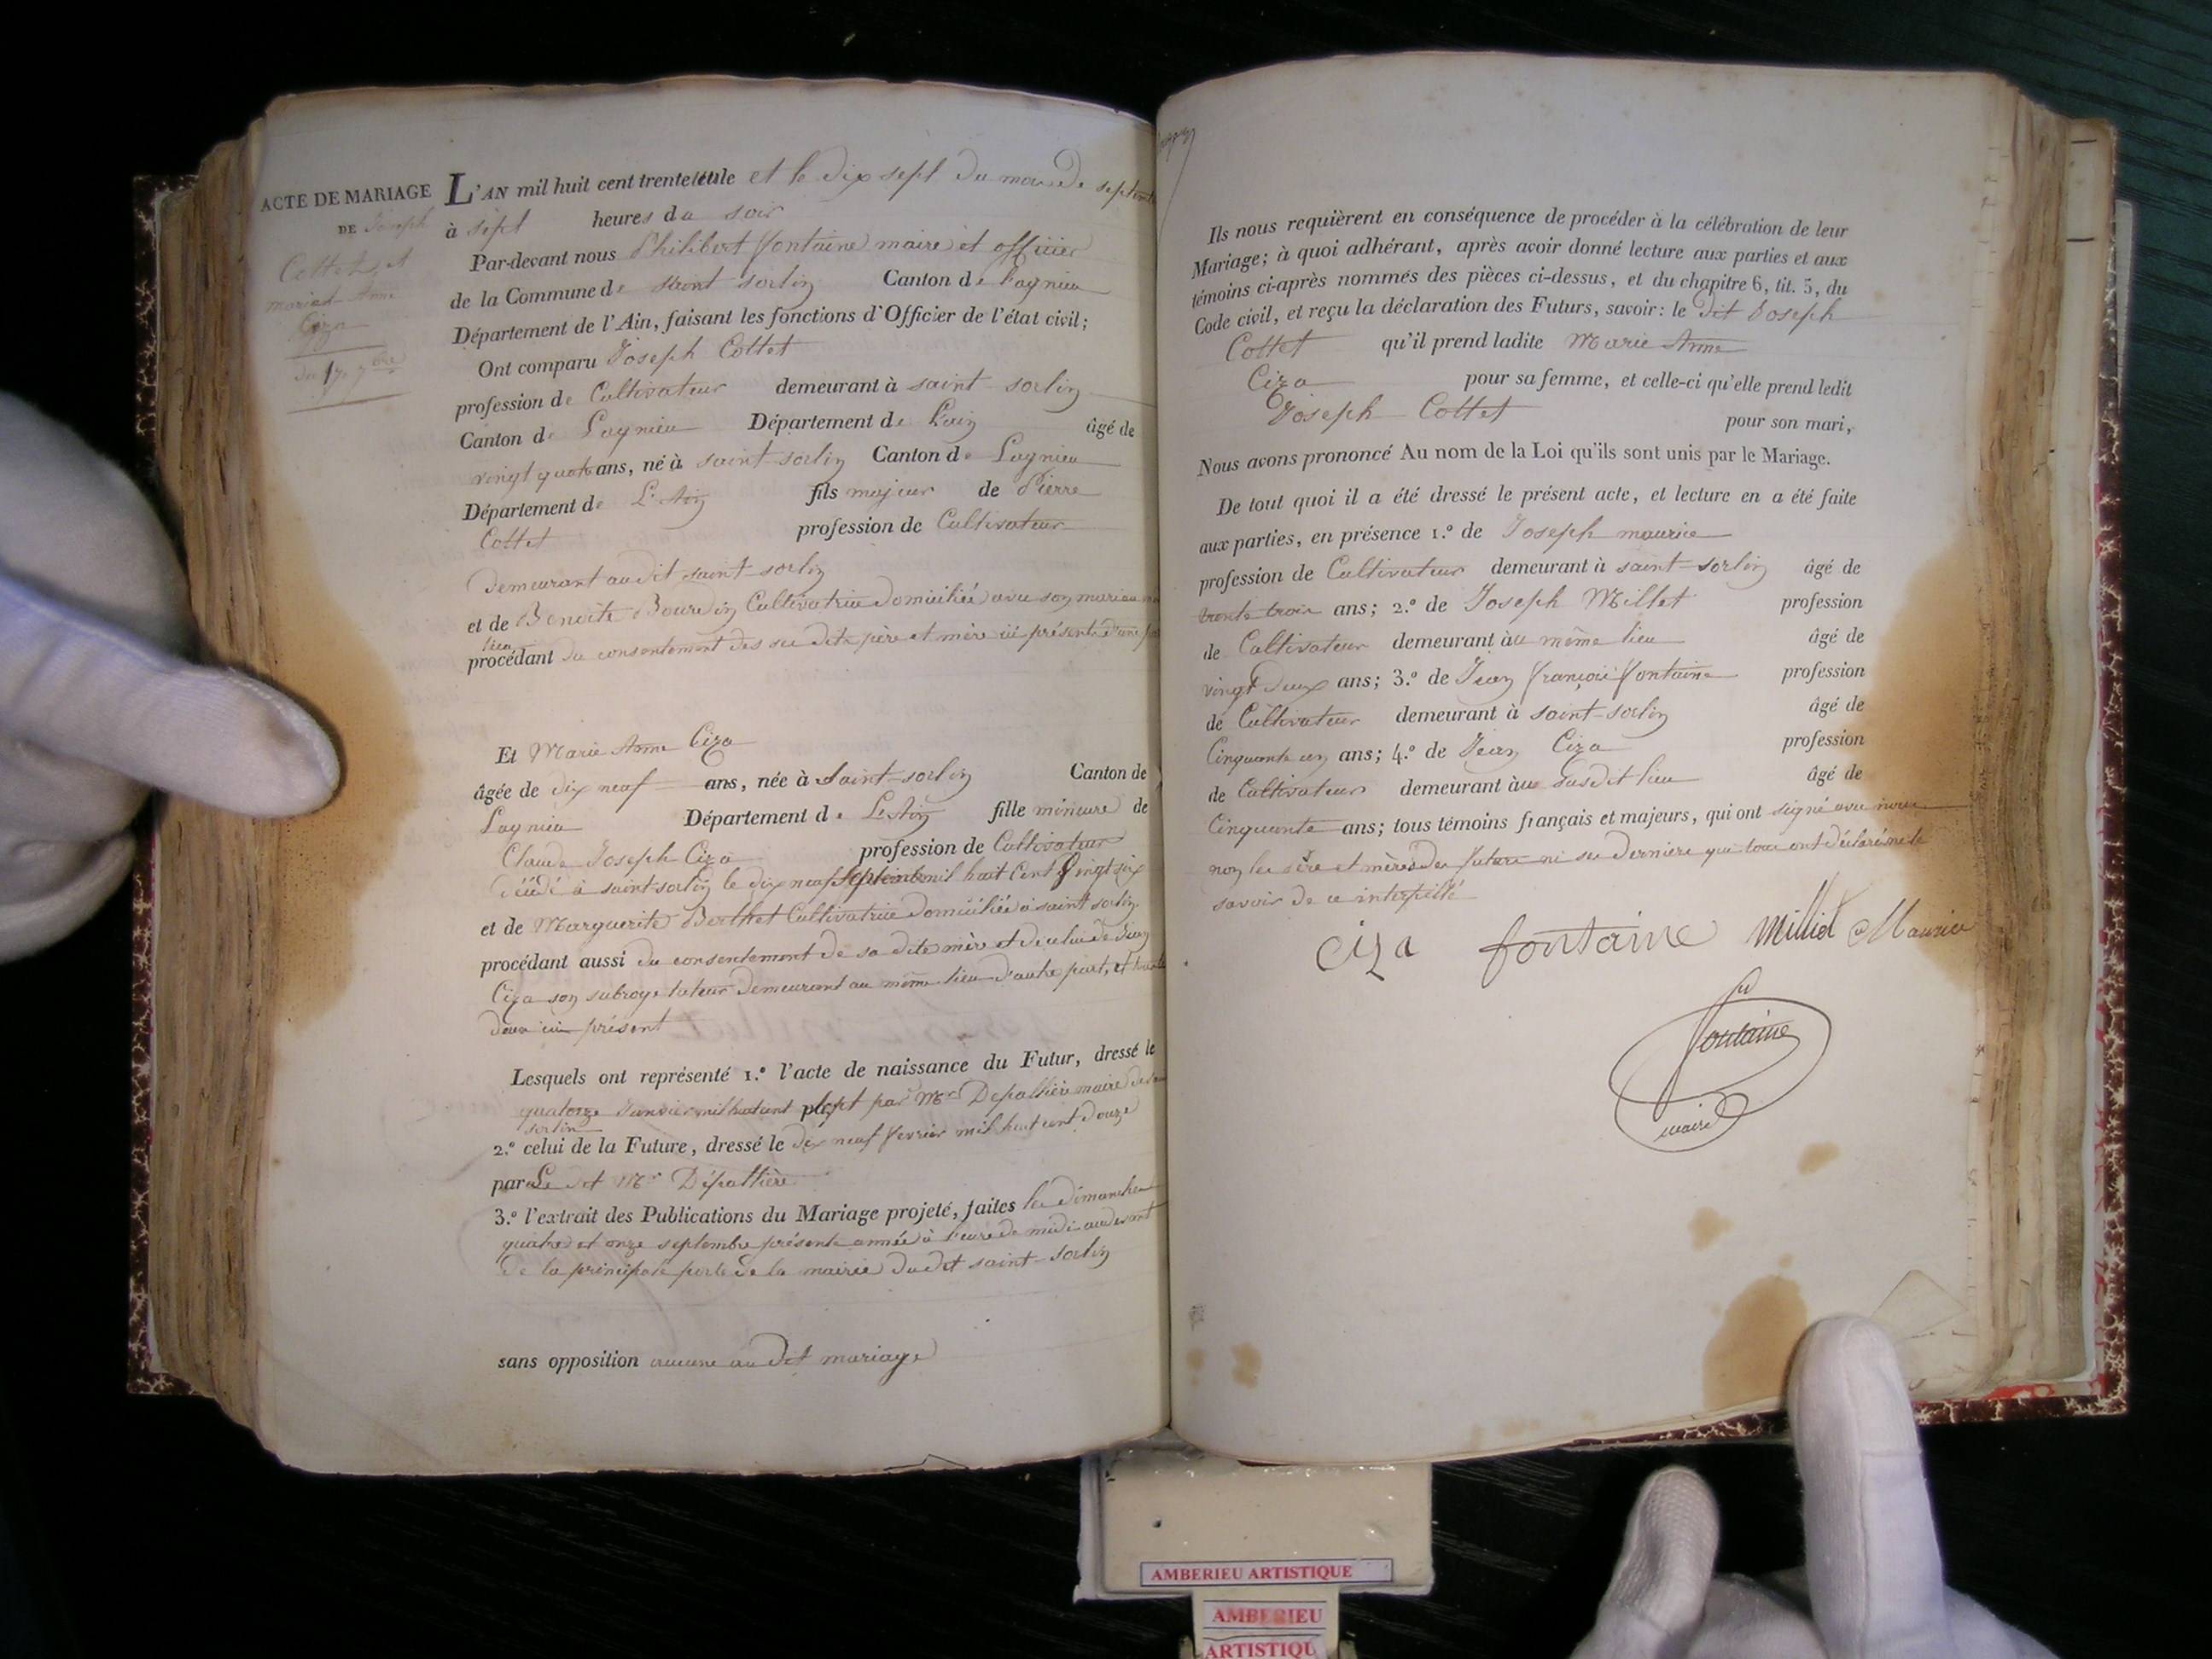 ACTE DE MARIAGE
DE Joseph
Cottet et
mariat Anne
Ciza
du 17 7bre
L'AN mil huit cent trente et le dix sept du mois de septembre
à sept heures du soir
Par-devant nous Philibert fontaine maire et officier
de la Commune de saint sorlin Canton de Lagnieu
Département de l'Ain, faisant les fonctions d'Officier de l'état civil;
Ont comparu Joseph Cottet
profession de Cultivateur demeurant à saint-sorlin
Canton de Lagnieu Département de L'ain âgé de
vingt quatre ans, né à saint-sorlin Canton de Lagnieu
Département de L'Ain fils majeur de Pierre
Cottet profession de Cultivateur
demeurant audit saint-sorlin
et de Benoite Bourdin Cultivatrice domiciliée avec son mari au
lieu
procédant du consentement des su dits père et mère ici présents d'une
Et Marie Anne Ciza
âgée de dix neuf ans, née à Saint-sorlin Canton de
Lagnieu Département de L'Ain fille mineure de
Claude Joseph Ciza profession de Cultivateur
décédé à saint-sorlin le dix neuf septembre mil huit Cent vingt six
et de Marguerite Berthet Cultivatrice domiciliée à saint sorlin
procédant aussi du consentement de sa dite mère et de celui de Jean
Ciza son subrogé tuteur demeurant au même lieu d'autre part, et tous
deux ici présent
Lesquels ont représenté 1.° l'acte de naissance du Futur, dressé le
quatorze Janvier mil huit cent sept par Mr Depallière maire de
sorlin
2.° celui de la Future, dressé le dix neuf fevrier mil huit cent douze
par Le dit Mr Dépallière
3.° l'extrait des Publications du Mariage projeté, faites les dimanches
quatre et onze septembre présente année à heure de midi au devant
de la principale porte de la mairie du dit saint-sorlin
sans opposition aucune au dit mariage
Ils nous requièrent en conséquence de procéder à la célébration de leur
Mariage; à quoi adhérant, après avoir donné lecture aux parties et aux
témoins ci-après nommés des pièces ci-dessus, et du chapitre 6, tit. 5, du
Code civil, et reçu la déclaration des Futurs, savoir: le dit Joseph
Cottet qu'il prend ladite Marie Anne
Ciza pour sa femme, et celle-ci qu'elle prend ledit
Joseph Cottet pour son mari,
Nous avons prononcé Au nom de la Loi qu'ils sont unis par le Mariage.
De tout quoi il a été dressé le présent acte, et lecture en a été faite
aux parties, en présence 1.° de Joseph maurice
profession de Cultivateur demeurant à saint-sorlin âgé de
trente trois ans; 2.° de Joseph Millet profession
de Cultivateur demeurant au même lieu âgé de
vingt deux ans; 3.° de Jean françois fontaine profession
de Cultivateur demeurant à saint-sorlin âgé de
Cinquante un ans; 4.° de Jean Ciza profession
de Cultivateur demeurant au susdit lieu âgé de
Cinquante ans; tous témoins français et majeurs, qui ont signé avec nous
non les père et mères des futurs ni ces derniers qui tous ont déclaré ne le
savoir de ce interpellé
Ciza fontaine Milliet Maurice
fontaine
maire
AMBERIEU ARTISTIQUE
AMBERIEU
ARTISTIQU